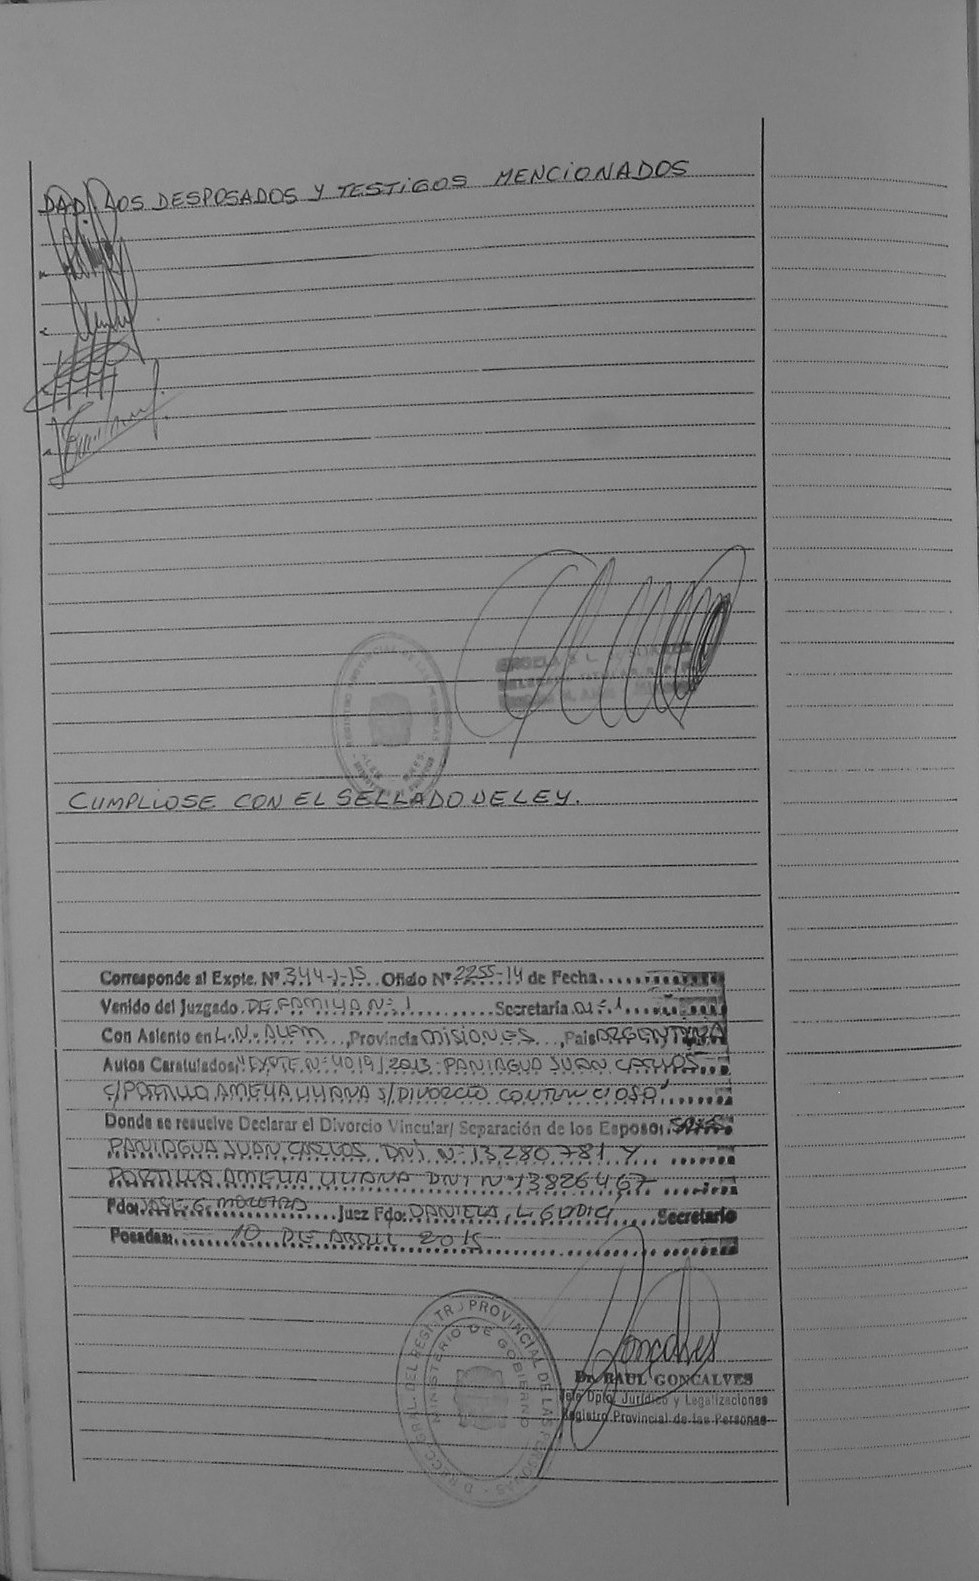 DAD, LOS DESPOSADOS Y TESTIGOS MENCIONADOS
CUMPLIOSE CON EL SELLADO DE LEY.
Corresponde al Expte. Nº 344-J-15 Oficio Nº 2255-14 de Fecha
Venido del Juzgado DE FAMILIA Nº 1 Secretaria Nº 1
Con Asiento en L.N. ALEM, Provincia MISIONES, Pais ARGENTINA
Autos Caratulados: "EXPTE. Nº 4019/2013 PANIAGUA JUAN CARLOS
C/PORTILLO AMELIA LILIANA S/DIVORCIO CONTENCIOSO"
Donde se resuelve Declarar el Divorcio Vincular/ Separación de los Esposos
PANIAGUA JUAN CARLOS DNI Nº 13280781 Y
PORTILLO AMELIA LILIANA DNI Nº 13826467
Fdo: JOSE G. MOREIRA Juez Fdo: DANIELA, L. GUDICI Secretario
Posadas, 10 DE ABRIL 2015
DIRECC. GRAL. DEL REGISTRO PROVINCIAL DE LAS PERSONAS
MINISTERIO DE GOBIERNO
Goncalves
Dr. RAUL GONCALVES
Jefe Dpto. Jurídico y Legalizaciones
Registro Provincial de las Personas